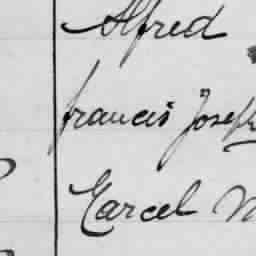 Alfred
francis Joseph
Marcel